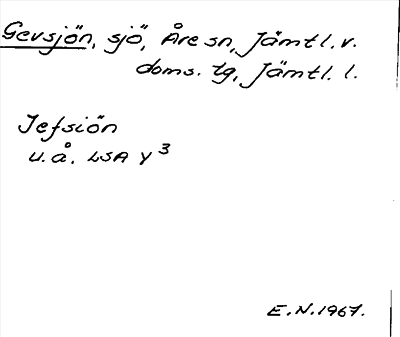 Gevsjön, sjö, Åre sn, Jämtl. v.
doms. tg, Jämtl. l.
Jefsiön
u.å. LSA Y3
E.N. 1967.